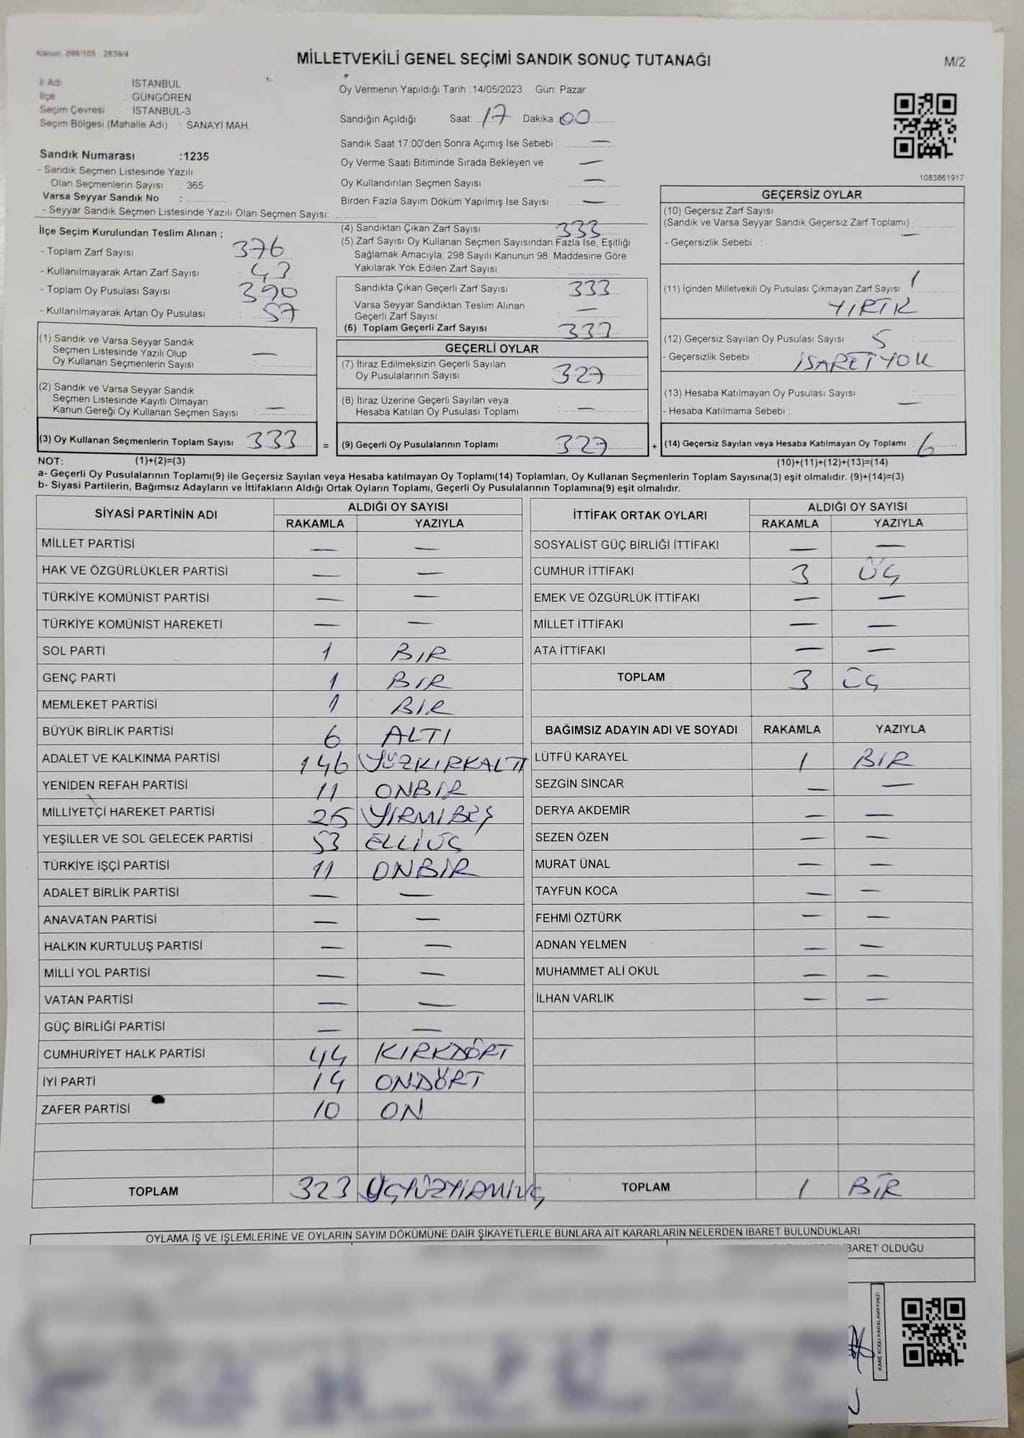 Kanun: 298/105 2839/4
MİLLETVEKİLİ GENEL SEÇİMİ SANDIK SONUÇ TUTANAĞI
M/2
İl Adı : İSTANBUL
İlçe : GÜNGÖREN
Seçim Çevresi : İSTANBUL-3
Seçim Bölgesi (Mahalle Adı) : SANAYİ MAH.
Sandık Numarası :1235
- Sandık Seçmen Listesinde Yazılı
Olan Seçmenlerin Sayısı : 365
Varsa Seyyar Sandık No :
- Seyyar Sandık Seçmen Listesinde Yazılı Olan Seçmen Sayısı:
Oy Vermenin Yapıldığı Tarih :14/05/2023 Gün: Pazar
Sandığın Açıldığı Saat: 17 Dakika: 00
Sandık Saat 17:00'den Sonra Açımış İse Sebebi : —
Oy Verme Saati Bitiminde Sırada Bekleyen ve —
Oy Kullandırılan Seçmen Sayısı —
Birden Fazla Sayım Döküm Yapılmış İse Sayısı —
1083861917
İlçe Seçim Kurulundan Teslim Alınan ;
- Toplam Zarf Sayısı 376
- Kullanılmayarak Artan Zarf Sayısı 43
- Toplam Oy Pusulası Sayısı 390
- Kullanılmayarak Artan Oy Pusulası 57
(1) Sandık ve Varsa Seyyar Sandık
Seçmen Listesinde Yazılı Olup
Oy Kullanan Seçmenlerin Sayısı —
(2) Sandık ve Varsa Seyyar Sandık
Seçmen Listesinde Kayıtlı Olmayan
Kanun Gereği Oy Kullanan Seçmen Sayısı —
(3) Oy Kullanan Seçmenlerin Toplam Sayısı 333 =
(4) Sandıktan Çıkan Zarf Sayısı 333
(5) Zarf Sayısı Oy Kullanan Seçmen Sayısından Fazla İse, Eşitliği
Sağlamak Amacıyla; 298 Sayılı Kanunun 98. Maddesine Göre
Yakılarak Yok Edilen Zarf Sayısı
Sandıkta Çıkan Geçerli Zarf Sayısı 333
Varsa Seyyar Sandıktan Teslim Alınan
Geçerli Zarf Sayısı: —
(6) Toplam Geçerli Zarf Sayısı 333
GEÇERLİ OYLAR
(7) İtiraz Edilmeksizin Geçerli Sayılan
Oy Pusulalarının Sayısı 327
(8) İtiraz Üzerine Geçerli Sayılan veya
Hesaba Katılan Oy Pusulası Toplamı —
(9) Geçerli Oy Pusulalarının Toplamı 327 +
GEÇERSİZ OYLAR
(10) Geçersiz Zarf Sayısı
(Sandık ve Varsa Seyyar Sandık Geçersiz Zarf Toplamı) —
- Geçersizlik Sebebi :
(11) İçinden Milletvekili Oy Pusulası Çıkmayan Zarf Sayısı 1
YIRTIK
(12) Geçersiz Sayılan Oy Pusulası Sayısı 5
- Geçersizlik Sebebi : İŞARET YOK
(13) Hesaba Katılmayan Oy Pusulası Sayısı —
- Hesaba Katılmama Sebebi :
(14) Geçersiz Sayılan veya Hesaba Katılmayan Oy Toplamı 6
NOT: (1)+(2)=(3) (10)+(11)+(12)+(13)=(14)
a- Geçerli Oy Pusulalarının Toplamı(9) ile Geçersiz Sayılan veya Hesaba katılmayan Oy Toplamı(14) Toplamları, Oy Kullanan Seçmenlerin Toplam Sayısına(3) eşit olmalıdır. (9)+(14)=(3)
b- Siyasi Partilerin, Bağımsız Adayların ve İttifakların Aldığı Ortak Oyların Toplamı, Geçerli Oy Pusulalarının Toplamına(9) eşit olmalıdır.
SİYASİ PARTİNİN ADI ALDIĞI OY SAYISI
RAKAMLA YAZIYLA
MİLLET PARTİSİ — —
HAK VE ÖZGÜRLÜKLER PARTİSİ — —
TÜRKİYE KOMÜNİST PARTİSİ — —
TÜRKİYE KOMÜNİST HAREKETİ — —
SOL PARTİ 1 BİR
GENÇ PARTİ 1 BİR
MEMLEKET PARTİSİ 1 BİR
BÜYÜK BİRLİK PARTİSİ 6 ALTI
ADALET VE KALKINMA PARTİSİ 146 YÜZKIRKALTI
YENİDEN REFAH PARTİSİ 11 ONBİR
MİLLİYETÇİ HAREKET PARTİSİ 25 YİRMİBEŞ
YEŞİLLER VE SOL GELECEK PARTİSİ 53 ELLİÜÇ
TÜRKİYE İŞÇİ PARTİSİ 11 ONBİR
ADALET BİRLİK PARTİSİ — —
ANAVATAN PARTİSİ — —
HALKIN KURTULUŞ PARTİSİ — —
MİLLİ YOL PARTİSİ — —
VATAN PARTİSİ — —
GÜÇ BİRLİĞİ PARTİSİ — —
CUMHURİYET HALK PARTİSİ 44 KIRKDÖRT
İYİ PARTİ 14 ONDÖRT
ZAFER PARTİSİ 10 ON
TOPLAM 323 ÜÇYÜZYİRMİÜÇ
İTTİFAK ORTAK OYLARI ALDIĞI OY SAYISI
RAKAMLA YAZIYLA
SOSYALİST GÜÇ BİRLİĞİ İTTİFAKI — —
CUMHUR İTTİFAKI 3 ÜÇ
EMEK VE ÖZGÜRLÜK İTTİFAKI — —
MİLLET İTTİFAKI — —
ATA İTTİFAKI — —
TOPLAM 3 ÜÇ
BAĞIMSIZ ADAYIN ADI VE SOYADI RAKAMLA YAZIYLA
LÜTFÜ KARAYEL 1 BİR
SEZGİN SİNCAR — —
DERYA AKDEMİR — —
SEZEN ÖZEN — —
MURAT ÜNAL — —
TAYFUN KOCA — —
FEHMİ ÖZTÜRK — —
ADNAN YELMEN — —
MUHAMMET ALİ OKUL — —
İLHAN VARLIK — —
TOPLAM 1 BİR
OYLAMA İŞ VE İŞLEMLERİNE VE OYLARIN SAYIM DÖKÜMÜNE DAİR ŞİKAYETLERLE BUNLARA AİT KARARLARIN NELERDEN İBARET BULUNDUKLARI
İBARET OLDUĞU